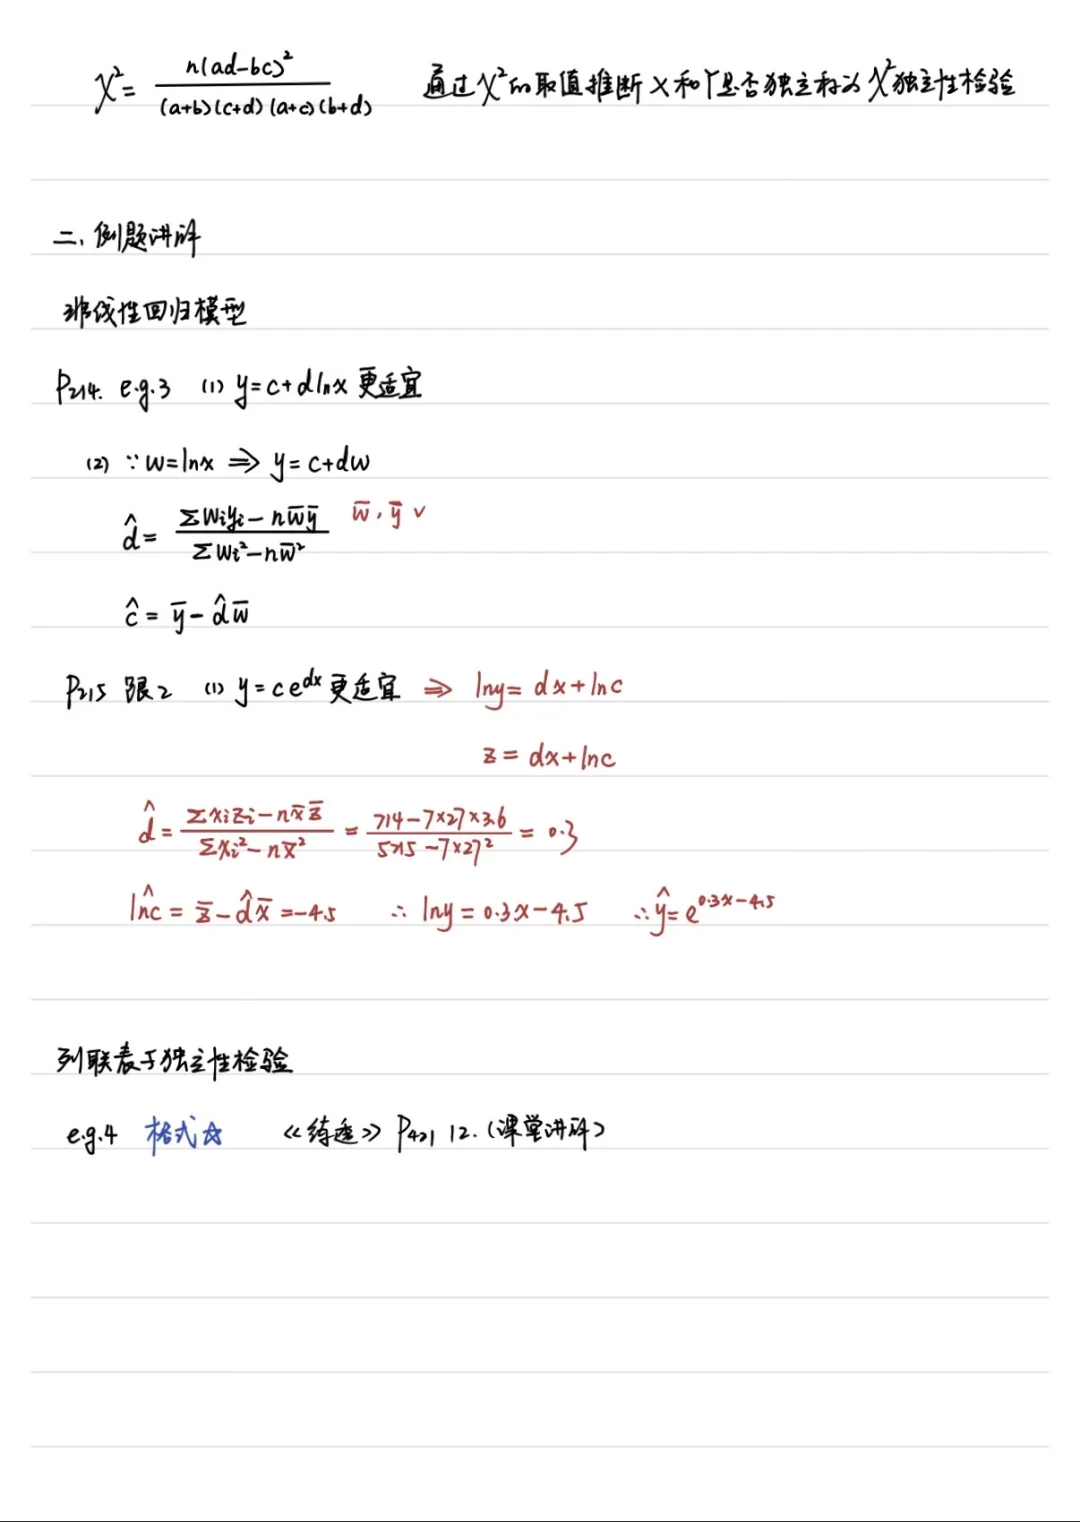 χ² = n(ad-bc)² / (a+b)(c+d)(a+c)(b+d) 通过χ²的取值推断X和Y是否独立称为χ²独立性检验
二、例题讲解
非线性回归模型
P214. e.g.3 (1) y=c+dlnx 更适宜
(2) ∵w=lnx ⇒ y=c+dw
d̂ = (Σwiyi - nw̄ȳ) / (Σwi² - nw̄²) w̄, ȳ ✓
ĉ = ȳ - d̂w̄
P215 跟2 (1) y=ce^{dx} 更适宜 ⇒ lny = dx+lnc
z = dx+lnc
d̂ = (Σxizi - nx̄z̄) / (Σxi² - nx̄²) = (714-7×27×3.6) / (5215-7×27²) = 0.3
ln̂c = z̄ - d̂x̄ = -4.5 ∴ lny = 0.3x-4.5 ∴ ŷ = e^{0.3x-4.5}
列联表与独立性检验
e.g.4 格式☆ 《练透》 P421 12.(课堂讲解)